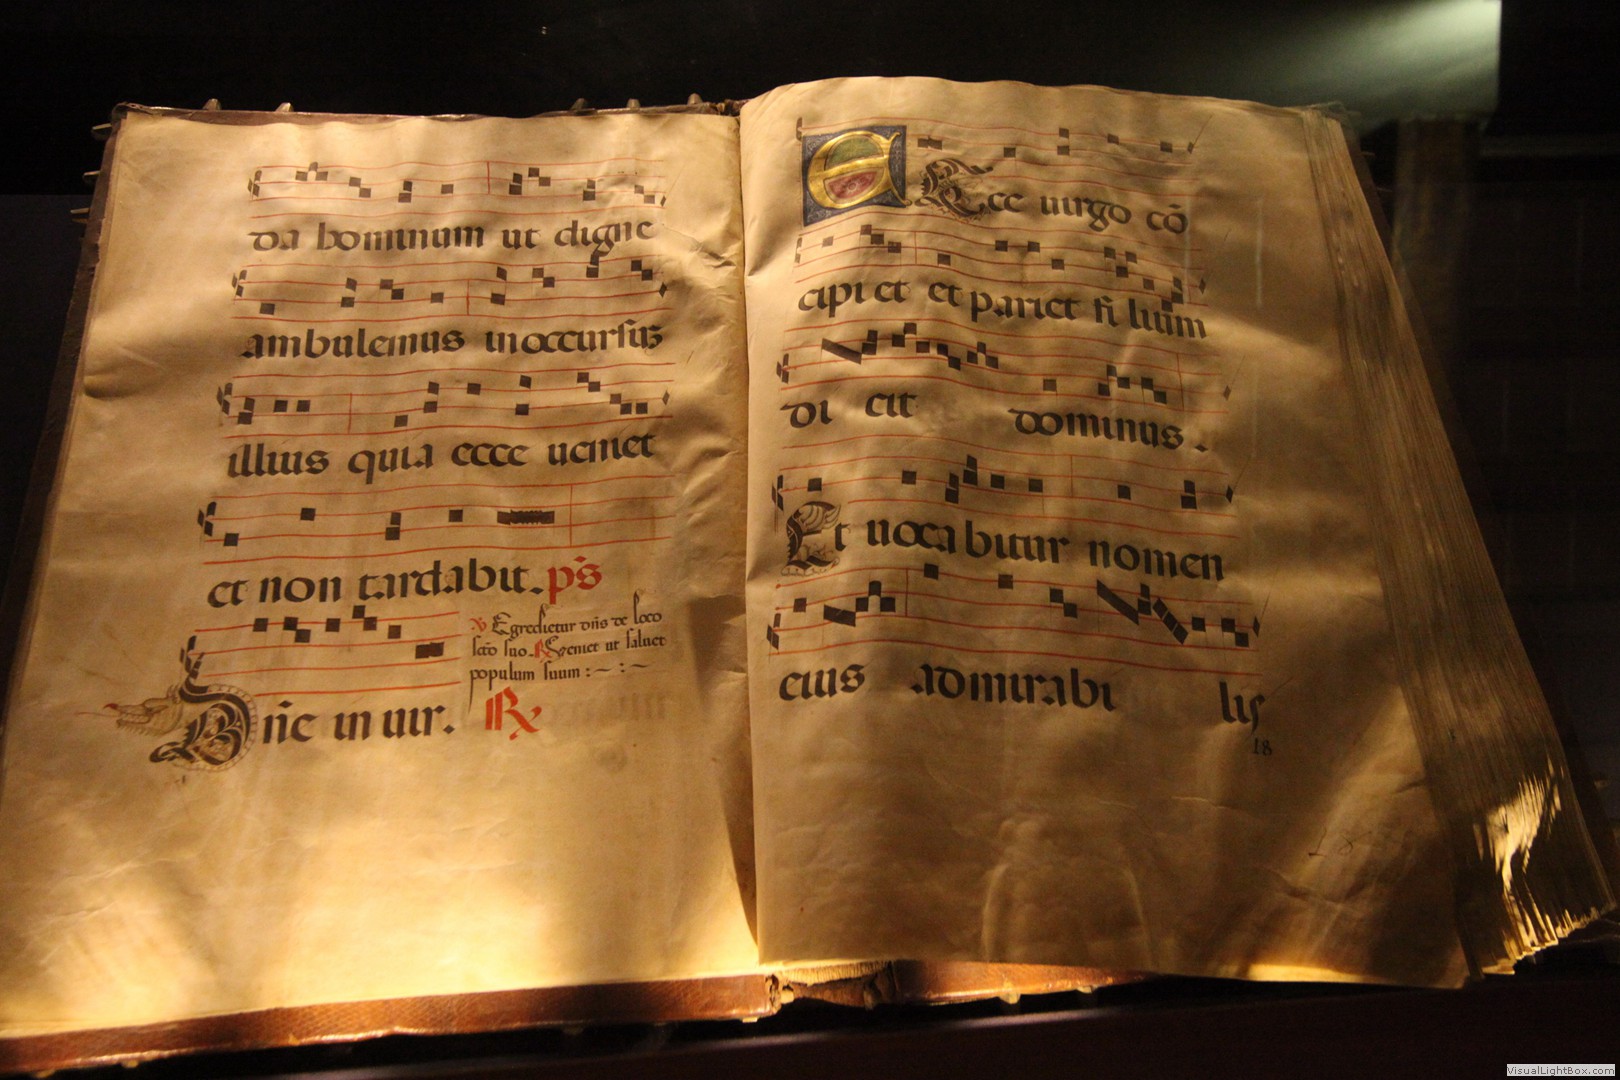 da hominum ut digne
ambulemus in occursum
illius quia ecce ueniet
et non tardabit. ps
℣ Egredietur dñs de loco
scõ suo. ℟ Veniet ut saluet
populum suum : ~ : ~
Dñe in uir. ℟
Ecce uirgo cõ
cipi et et pariet fi lium
di cit dominus.
Et uoca bitur nomen
eius admirabi lis
18
18
VisualLightBox.com